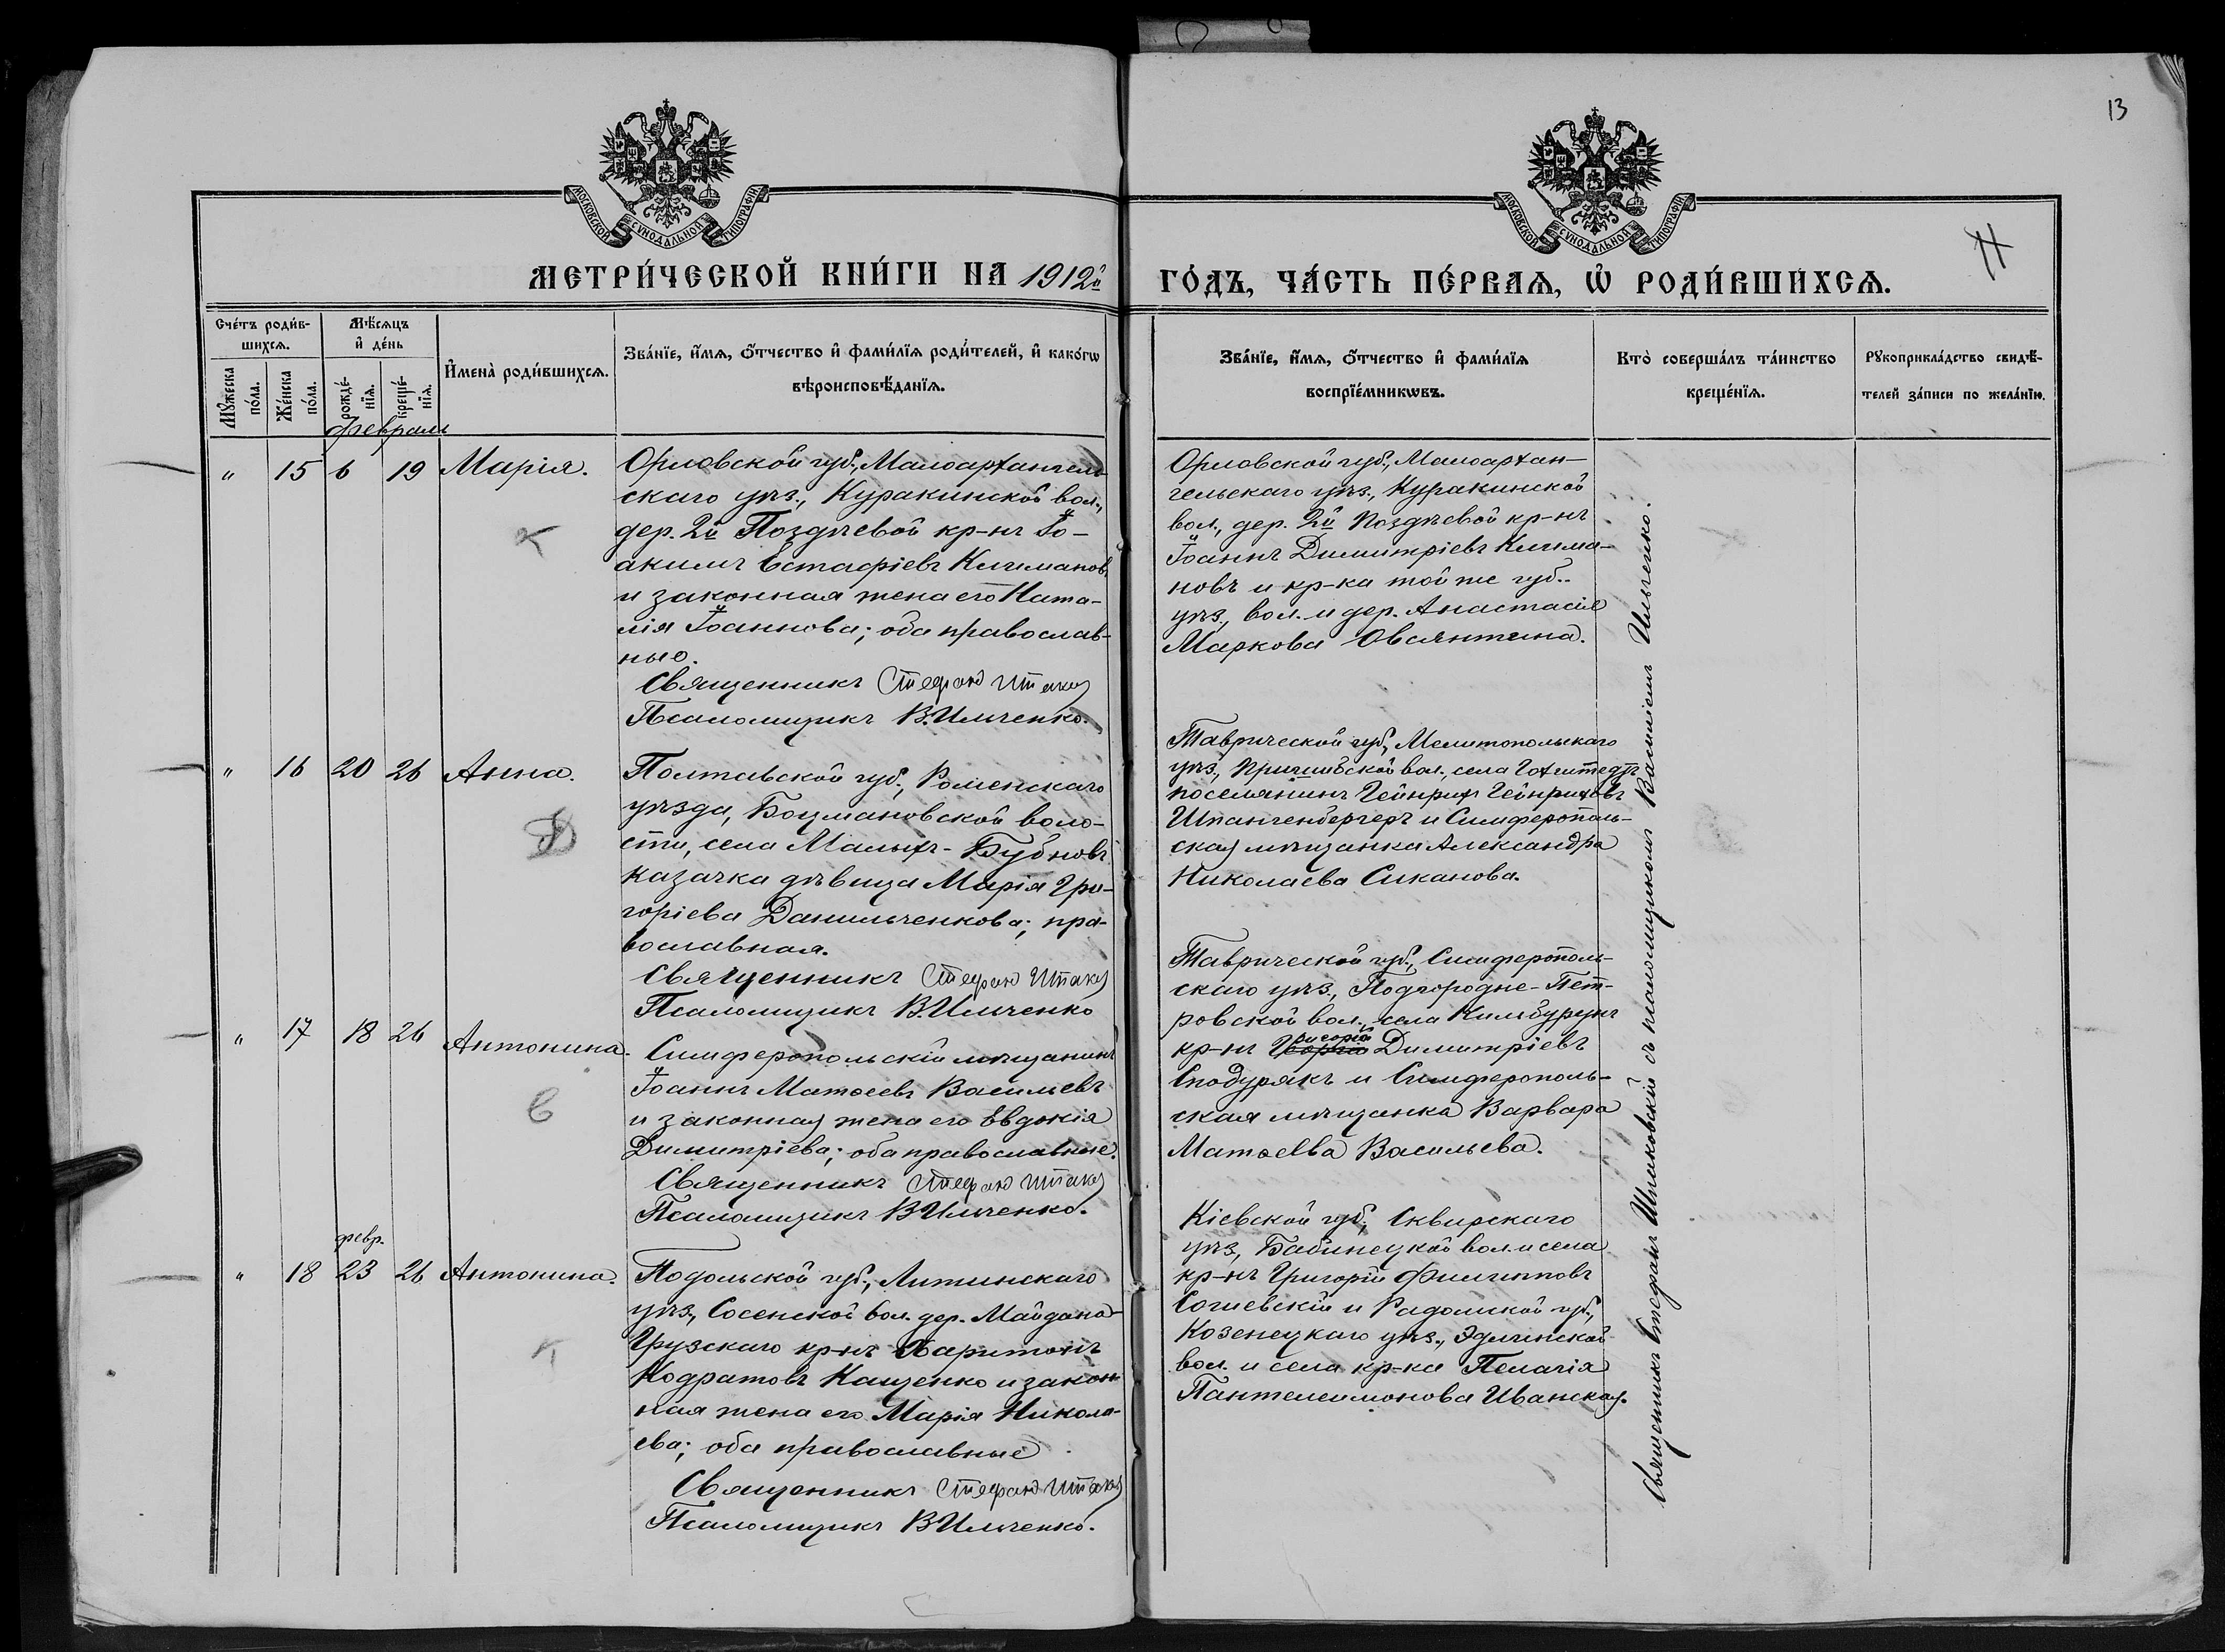 13
Н
МОСКОВСКОЙ СѴНОДАЛЬНОЙ ТИПОГРАФІИ
МОСКОВСКОЙ СѴНОДАЛЬНОЙ ТИПОГРАФІИ
МЕТРИ́ЧЕСКОЙ КНИ́ГИ НА 1912й ГО́ДЪ, ЧА́СТЬ ПЕ́РВАѦ, Ѡ҆ РОДИ́ВШИХСѦ.
Сче́тъ роди́в-
шихсѧ.
Мꙋ́жеска по́ла.
Же́нска по́ла.
Мѣ́сѧцъ
и҆ де́нь
рожде́-
нїѧ.
креще́-
нїѧ.
И҆мена̀ роди́вшихсѧ.
Зва́нїе, и҆́мѧ, ѻ҆́тчество и҆ фами́лїѧ роди́телей, и҆ како́гѡ
вѣроисповѣ́данїѧ.
Зва́нїе, и҆́мѧ, ѻ҆́тчество и҆ фами́лїѧ
воспрїе́мникѡвъ.
Кто̀ соверша́лъ та́инство
креще́нїѧ.
Рꙋкоприкла́дство свидѣ́-
телей за́писи по жела́нїю.
Февраль
" 15 6 19 Марія.
К
Орловской губ., Малоархангель-
скаго уѣз., Куракинской вол.,
дер. 2й Поздѣевой кр-нъ Іо-
акимъ Евстафіевъ Климановъ
и законная жена его Ната-
лія Іоаннова; оба православ-
ные.
Священникъ Стефанъ
Псаломщикъ В. Ильченко.
Орловской губ., Малоархан-
гельскаго уѣз., Куракинской
вол., дер. 2й Поздѣевой кр-нъ
Іоаннъ Димитріевъ Клима-
новъ и кр-ка той же губ..
уѣз., вол. и дер. Анастасія
Маркова Овсянкина.
" 16 20 26 Анна.
Д
Полтавской губ., Роменскаго
уѣзда, Боцмановской воло-
сти, села Малыхъ-Бубновъ
казачка дѣвица Марія Гри-
горіева Данильченкова; пра-
вославная.
Священникъ Стефанъ
Псаломщикъ В. Ильченко
Таврической губ., Мелитопольскаго
уѣз., Пришибской вол., села
поселянинъ Гейнрихъ Гейнриховъ
и Симферополь-
ская мѣщанка Александра
Николаева Сиканова.
" 17 18 26 Антонина.
В
Симферопольскій мѣщанинъ
Іоаннъ Матѳеевъ Васильевъ
и законная жена его Евдокія
Димитріева; оба православные.
Священникъ Стефанъ
Псаломщикъ В Ильченко.
Таврической губ., Симферополь-
скаго уѣз., Подгородне-Пет-
ровской вол., села Кильбурунъ
кр-нъ Димитріевъ
Сподурякъ и Симферополь-
ская мѣщанка Варвара
Матѳеева Васильева.
февр.
" 18 23 26 Антонина.
К
Подольской губ., Литинскаго
уѣз., Сосенской вол. дер. Майдана-
Грузскаго кр-нъ Харитонъ
Кодратовъ Кащенко и закон-
ная жена его Марія Никола-
ева; оба православные
Священникъ Стефанъ
Псаломщикъ В Ильченко.
Кіевской губ., Сквирскаго
уѣз., Бабинецкой вол. и села
кр-нъ Григорій Филипповъ
и Радомской губ.,
Козенецкаго уѣз.,
вол. и села кр-ка Пелагія
Пантелеимонова Иванская.
Священникъ Стефанъ Шпаковскій съ псаломщикомъ Ильченко.